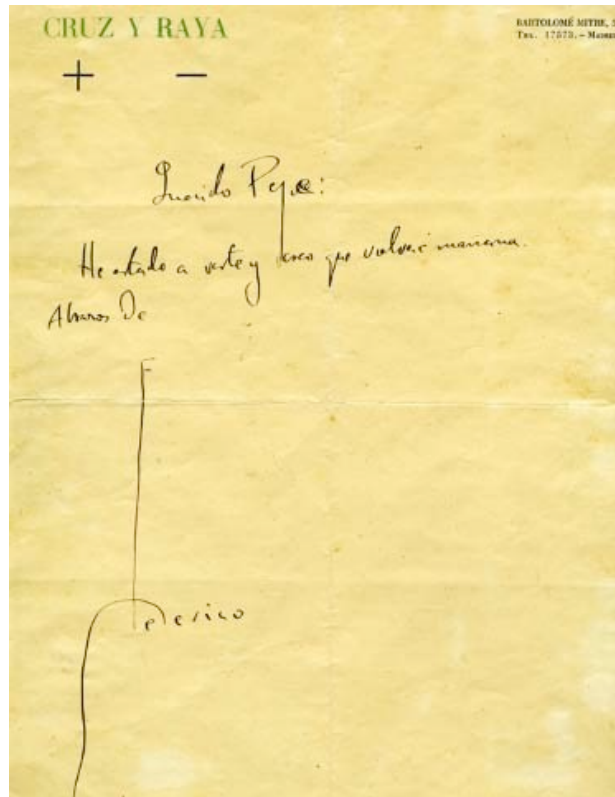 CRUZ Y RAYA
BARTOLOMÉ MITRE,
TEL. 17573.–
+ –
Querido Pepe:
He estado a verte y creo que volveré mañana.
Abrazos De
Federico